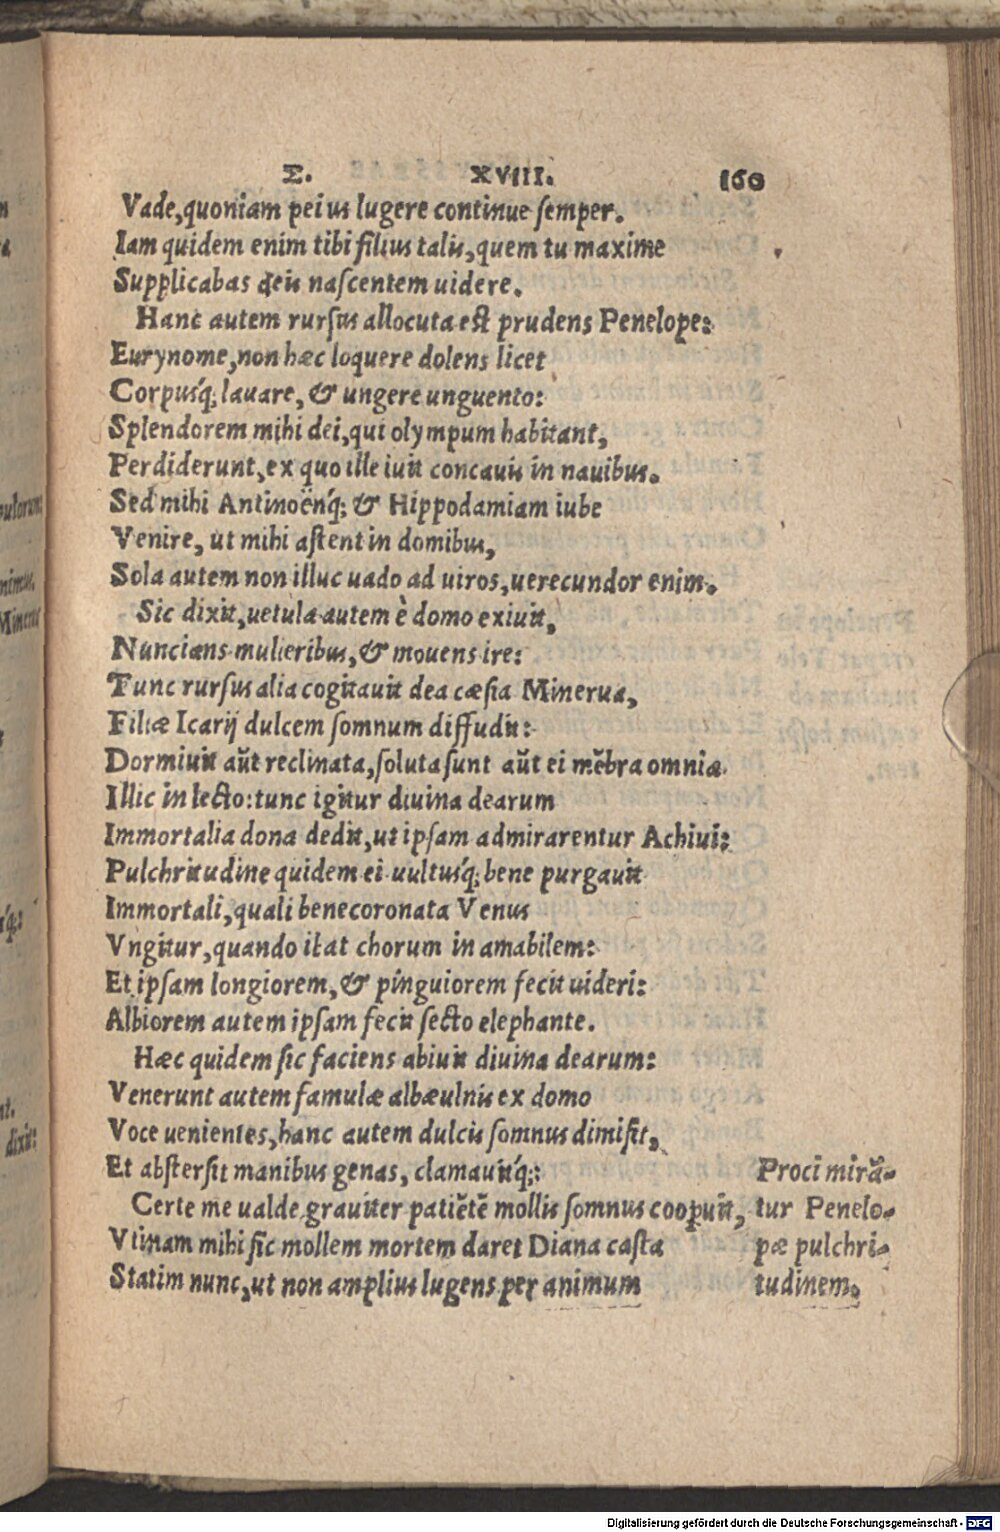 Σ. XVIII. 160
Vade, quoniam peius lugere continue semper.
Iam quidem enim tibi filius talis, quem tu maxime
Supplicabas deis nascentem uidere.
Hanc autem rursus allocuta est prudens Penelope:
Eurynome, non hæc loquere dolens licet
Corpusq́; lauare, & ungere unguento:
Splendorem mihi dei, qui olympum habitant,
Perdiderunt, ex quo ille iuit concauis in nauibus.
Sed mihi Antinoënq́; & Hippodamiam iube
Venire, ut mihi astent in domibus,
Sola autem non illuc uado ad uiros, uerecundor enim.
Sic dixit, uetula autem è domo exiuit,
Nuncians mulieribus, & mouens ire:
Tunc rursus alia cogitauit dea cæsia Minerua,
Filiæ Icarij dulcem somnum diffudit:
Dormiuit aũt reclinata, soluta sunt aũt ei mẽbra omnia
Illic in lecto: tunc igitur diuina dearum
Immortalia dona dedit, ut ipsam admirarentur Achiui:
Pulchritudine quidem ei uultusq́; bene purgauit
Immortali, quali benecoronata Venus
Vngitur, quando itat chorum in amabilem:
Et ipsam longiorem, & pinguiorem fecit uideri:
Albiorem autem ipsam fecit secto elephante.
Hæc quidem sic faciens abiuit diuina dearum:
Venerunt autem famulæ albæulnis ex domo
Voce uenientes, hanc autem dulcis somnus dimisit,
Et abstersit manibus genas, clamauitq́;:
Certe me ualde grauiter patiẽtẽ mollis somnus coopuit,
Vtinam mihi sic mollem mortem daret Diana casta
Statim nunc, ut non amplius lugens per animum
Proci mirã-
tur Penelo-
pæ pulchri-
tudinem.
Digitalisierung gefördert durch die Deutsche Forschungsgemeinschaft - DFG